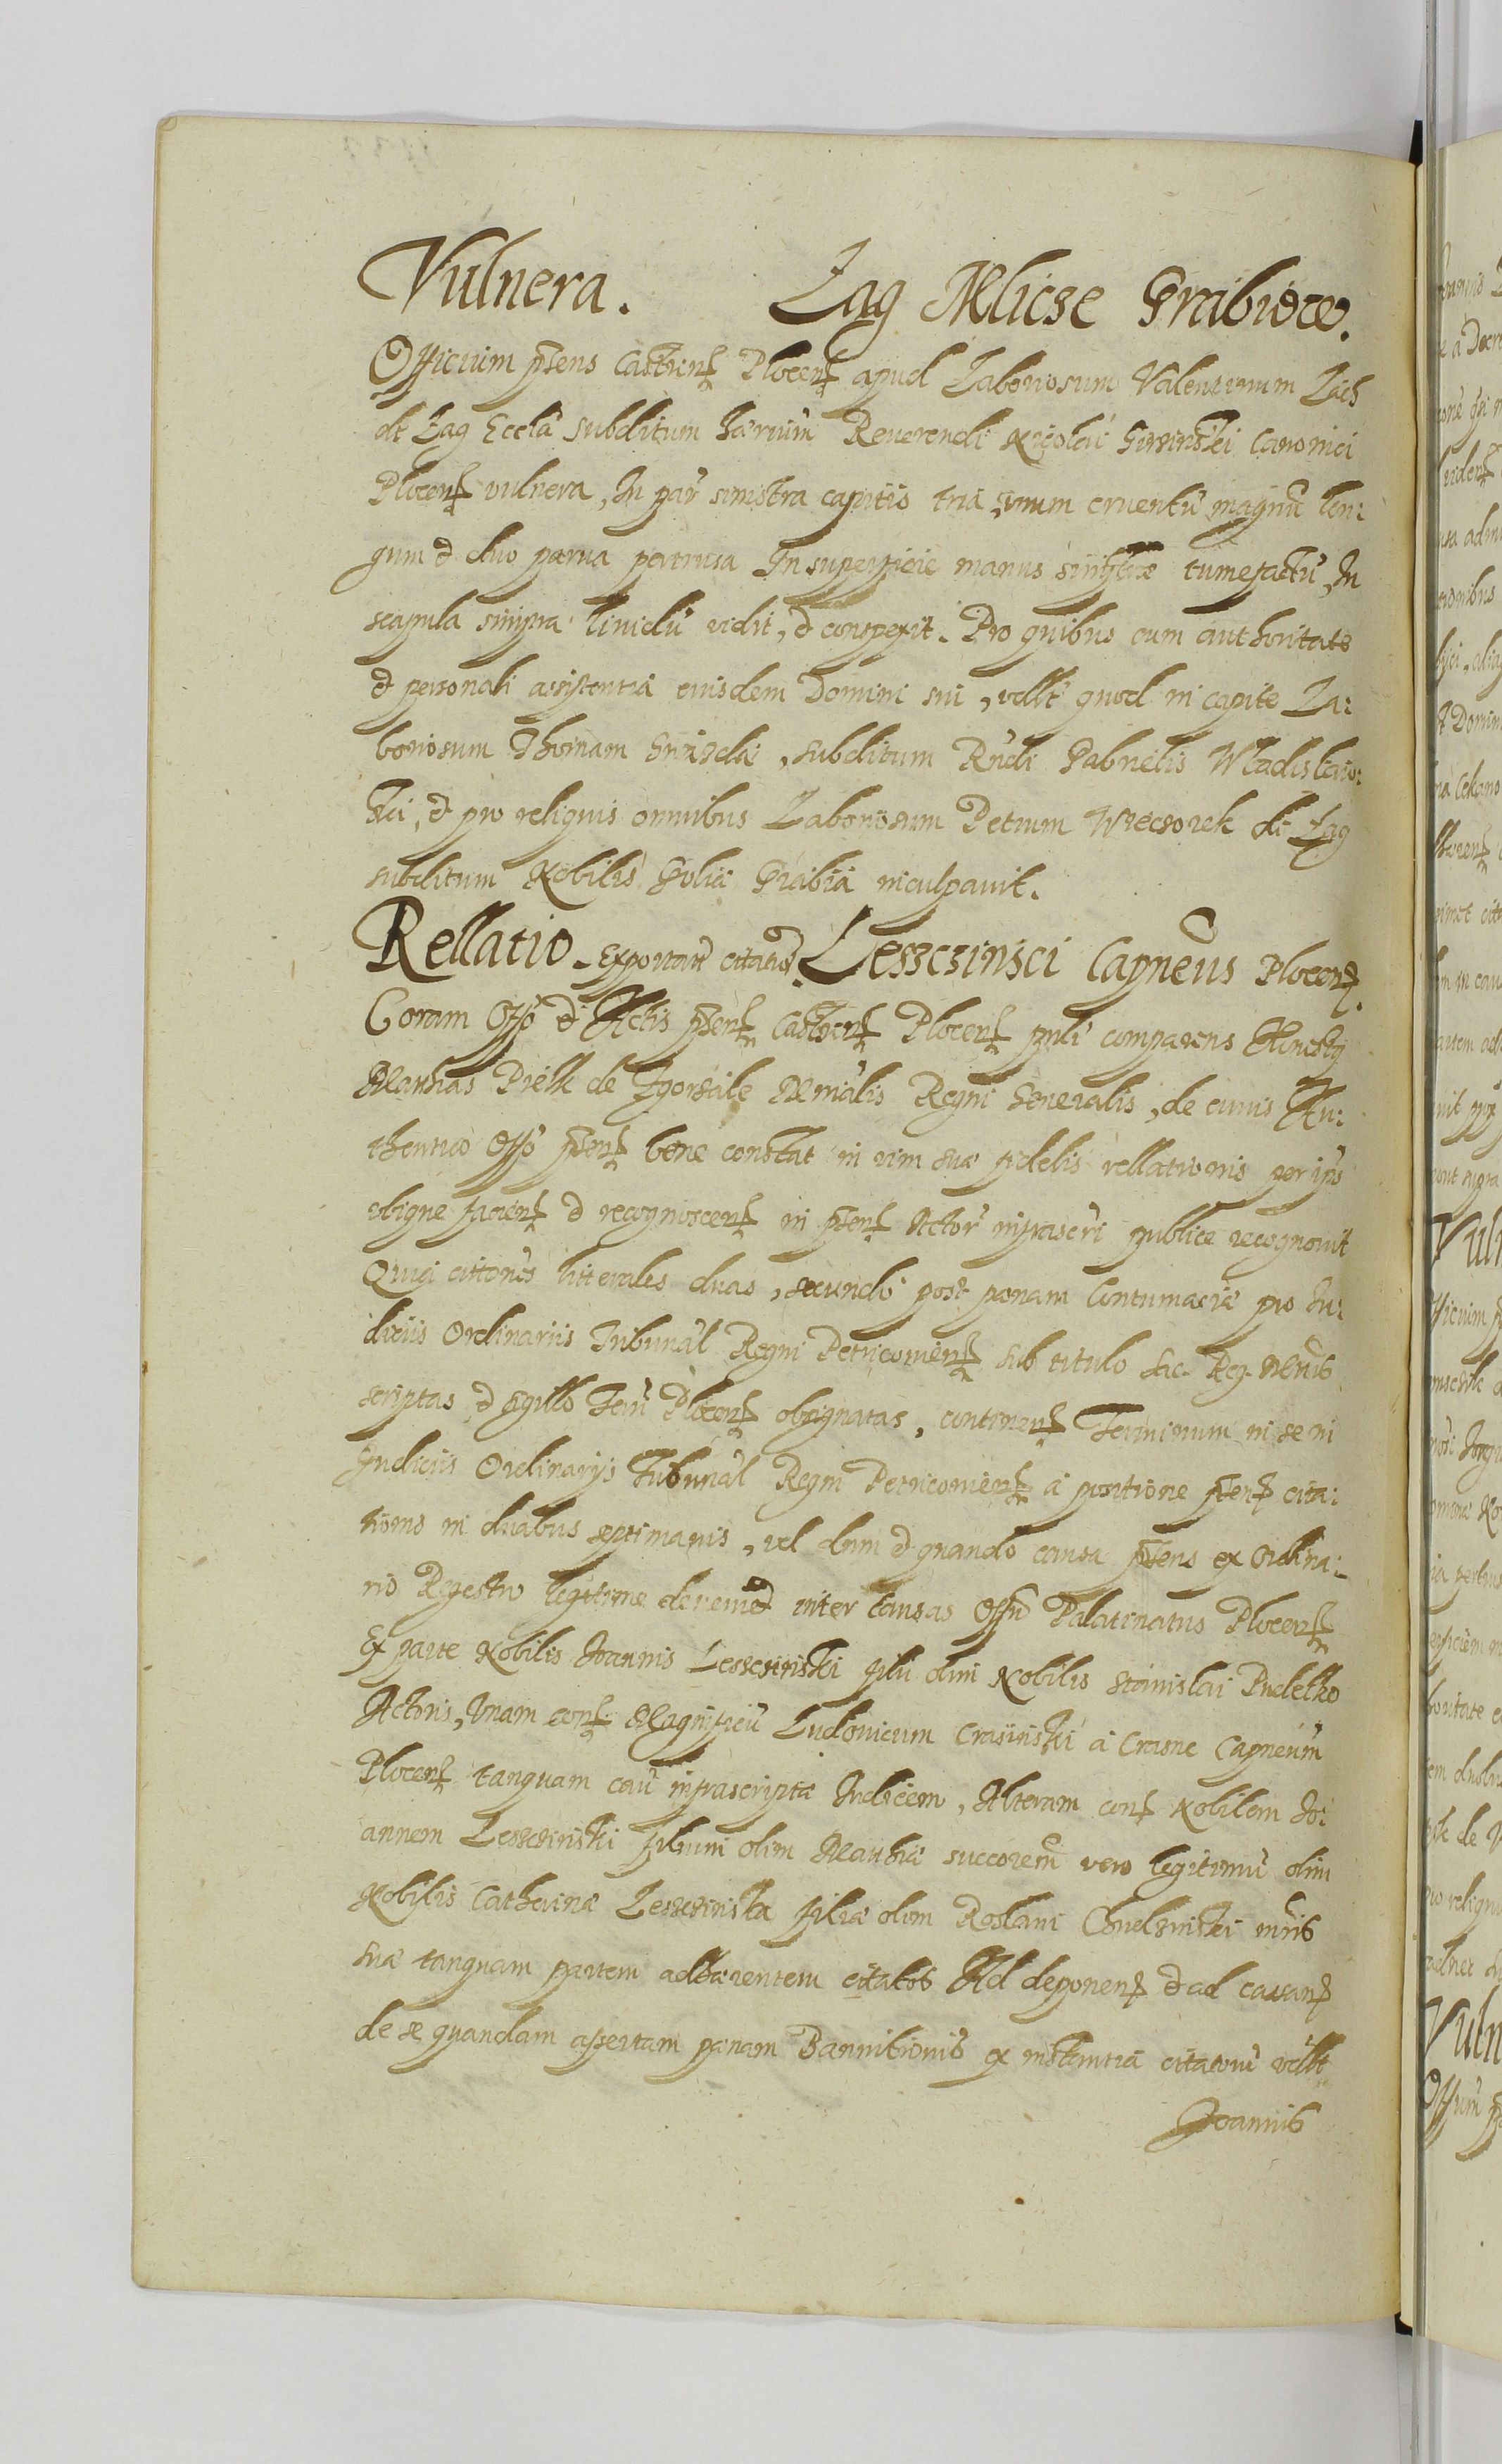 Vulnera. Zag Mlicze Grabiece.
Officium pñs Castren Plocen apud Laboriosum Valentinum Lach
de Zag Eccla subditum Reverendi Nicolai Canonici
Plocen vulnera, In par sinistra capitis tria, unum cruentu magnu lon:
gum et duo parva pertrusa In superficie manus sinistræ tumefactu, In
scapula sinistra lividu vidit, et conspexit. Pro quibus cum authoritate
et personali assistentia eiusdem Domini sui, vdlt quod in capite La:
boriosum Thomam, subditum Rndi Gabrielis Wladislaw:
ski, et pro reliquis omnibus Laboriosum Petrum Wieczorek de Zag
subditum Nobilis Grabia inculpavit.
Rellatio Exportat citatio. Leszczinsci Capneus Plocen.
Coram Offo et Actis pñten Castren Plocen psnlr comparens Honestg
Mathias de Mnialis Regni Generalis, de cuius Au:
thentico Offo pñten bene constat in vim suæ fidelis rellationis per ips
ubique facien et recognoscen in pñten Actor infrascri publice recognovit
Quia cittones litterales duas, secundo post pænam Contumaciæ pro Iu:
diciis Ordinariis Tribunal Regni Petricovien sub titulo Sac. Reg. Mtis
scriptas et sigillo Plocen obsignatas, continen Terminum in se in
Iudiciis Ordinariis Tribunal Regni Petricovien a positione pñten cita:
tionis in duabus septimanis, vel dum et quando causa pñtens ex Ordina:
rio Regestro legitime devened inter causas Offii Palatinatus Plocen
Ex parte Nobilis Ioannis Leszczinski filii olim Nobilis Stanislai Pudelko
Actoris, Unam con Magnificu Ludovicum Crasinski a Crasne Capneum
Plocen tanquam cau infrascriptæ Iudicem, Alteram con Nobilem Io:
annem Leszczinski filium olim Mathiæ succorem vero legitimu olim
Nobilis Catherinæ Leszczinska filiæ olim Roslani mris
suæ tanquam partem adhærentem citatos Ad deponen et ad cassan
de se quandam assertam pænam Bannitionis ex instantia citatoru vdlt
Ioannis